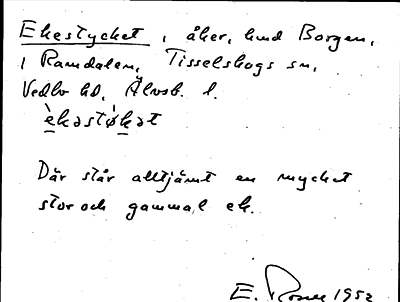 Ekestycket, åker, hmd Borgen,
i Ramdalen, Tisselskogs sn,
Vedbo hd, Älvsb. l.
èkastø̀kat
Där står alltjämt en mycket
stor och gammal ek.
E. Rosell 1952